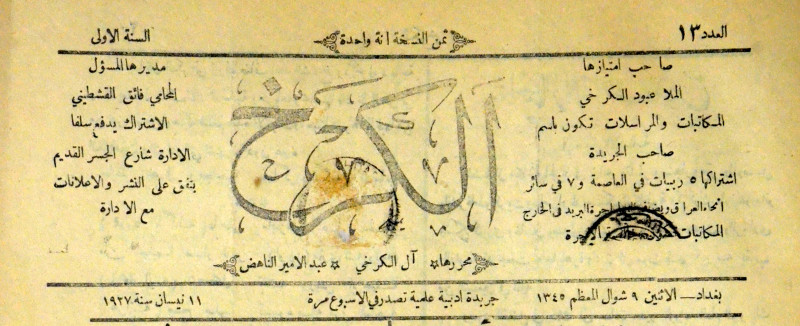 العدد ١٣
ثمن النسخة انة واحدة
السنة الاولى
صاحب امتيازها
الملا عبود الكرخي
المكاتبات والمراسلات تكون باسم
صاحب الجريدة
اشتراكها ٥ ربيات في العاصمة و ٧ في سائر
انحاء العراق ويضاف اجرة البريد في الخارج
المكاتبات الاجرة
الكرخ
مديرها المسؤل
المحامي فائق القشطيني
الاشتراك يدفع سلفا
الادارة شارع الجسر القديم
يتفق على النشر والاعلانات
مع الادارة
محررها * آل الكرخي * عبد الامير الناهض
بغداد ــ الاثنين ٩ شوال المعظم ١٣٤٥
جريدة ادبية علمية تصدر في الاسبوع مرة
١١ نيسان سنة ١٩٢٧